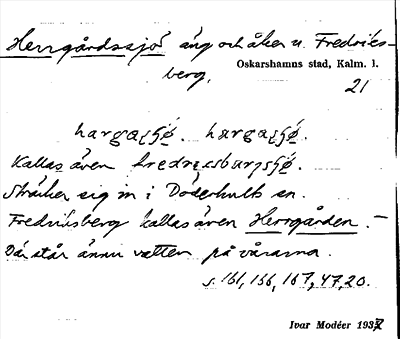 Herrgårdssjö äng och åker u. Fredriks-
berg.
Oskarshamns stad, Kalm. l.
21
Kallas även
Sträcker sig in i Döderhults sn.
Fredriksberg kallas även Herrgården. –
Där står ännu vatten på vårarna.
s. 161, 156, 167, 47, 20.
Ivar Modéer 1937